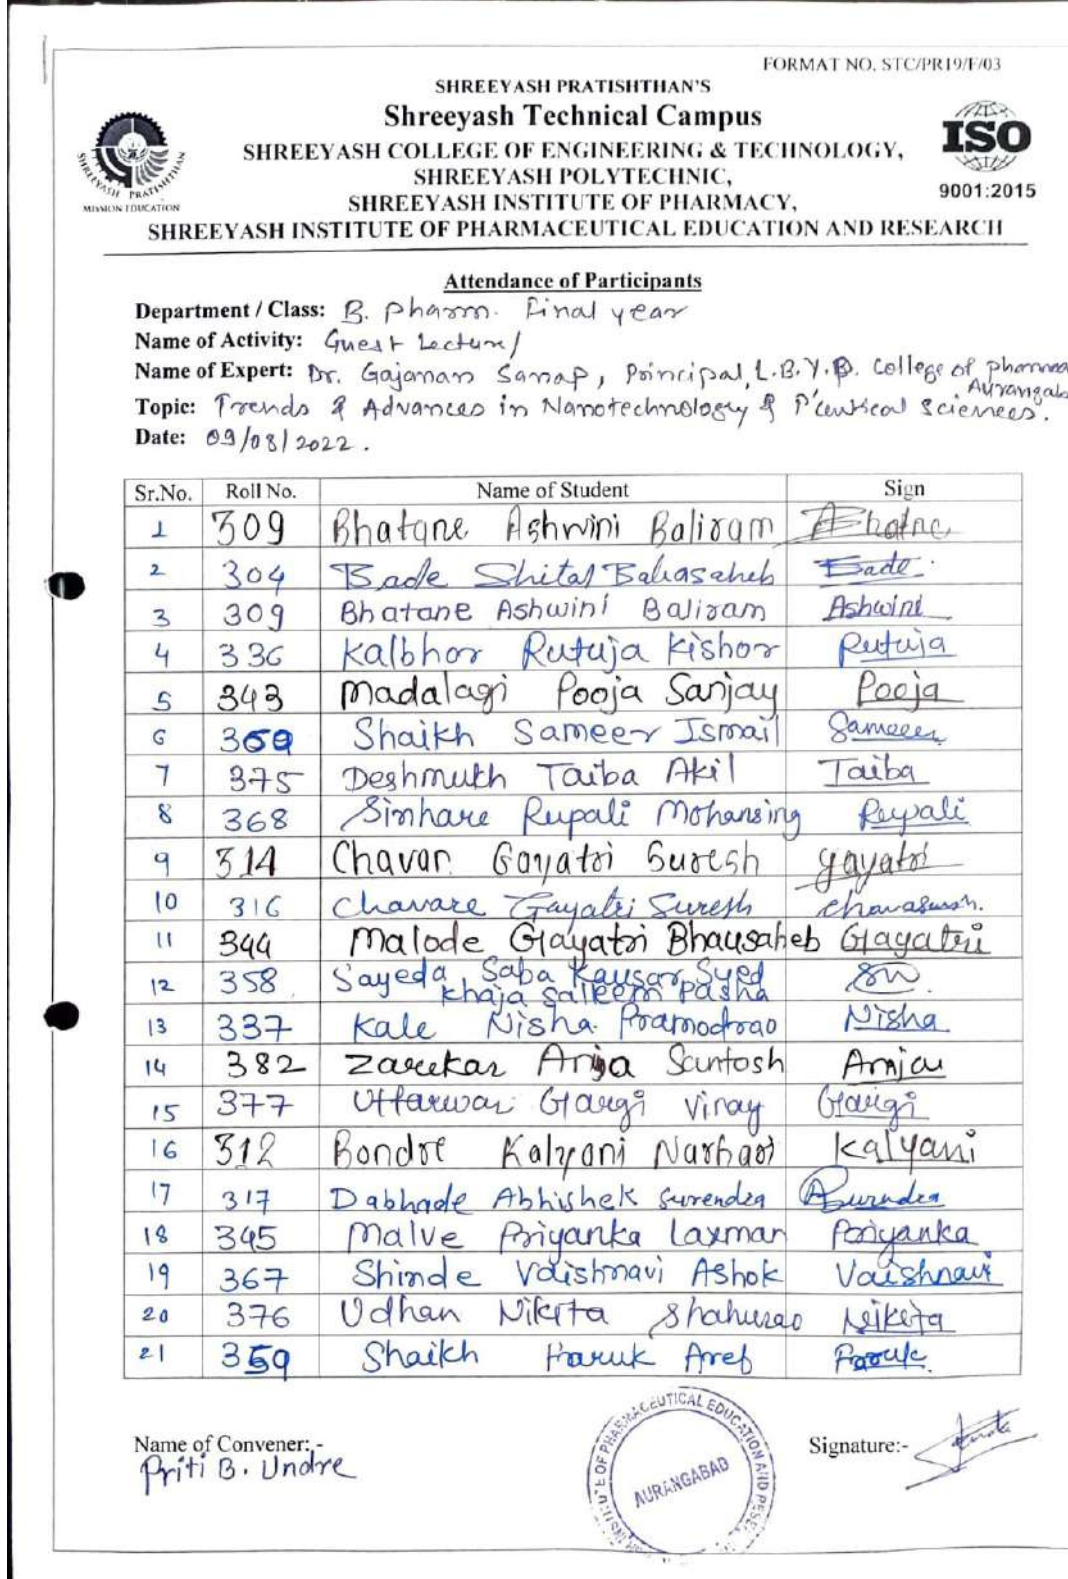 FORMAT NO. STC/PR19/F/03
SHREEYASH PRATISHTHAN'S
Shreeyash Technical Campus
SHREEYASH COLLEGE OF ENGINEERING & TECHNOLOGY,
SHREEYASH POLYTECHNIC,
SHREEYASH INSTITUTE OF PHARMACY,
SHREEYASH INSTITUTE OF PHARMACEUTICAL EDUCATION AND RESEARCH
SHREEYASH PRATISHTHAN
MISSION EDUCATION
ISO
9001:2015
Attendance of Participants
Department / Class: B. Pharm. Final year
Name of Activity: Guest Lecture/
Name of Expert: Dr. Gajanan Sanap, Principal, L.B.Y.P. College of pharma
Aurangab
Topic: Trends & Advances in Nanotechnology & P'ceutical Sciences.
Date: 09/08/2022.
Sr.No. Roll No. Name of Student Sign
1 309 Bhatane Ashwini Baliram
2 304 Bade Shital Babasaheb Bade
3 309 Bhatane Ashwini Baliram Ashwini
4 336 Kalbhor Rutuja Kishor Rutuja
5 343 Madalagi Pooja Sanjay Pooja
6 Shaikh Sameer Ismail Sameer
7 375 Deshmukh Taiba Akil Taiba
8 368 Sinhare Rupali Mohansing Rupali
9 314 Chavan Gayatri Suresh gayatri
10 316 Chavare Gayatri Suresh
11 344 Malode Gayatri Bhausaheb Gayatri
12 358 Sayeda Saba Kausar Syed
Khaja Saleem Pasha
13 337 Kale Nisha Pramodrao Nisha
14 382 Zarekar Santosh
15 377 Uttarwar Gargi Vinay Gargi
16 312 Bondre Kalyani Narhari Kalyani
17 317 Dabhade Abhishek Surendra
18 345 Malve Priyanka Laxman Priyanka
19 367 Shinde Vaishnavi Ashok Vaishnavi
20 376 Udhan Nikita Shahurao Nikita
21 359 Shaikh Faruk Aref Farouk
Name of Convener:-
Priti B. Undre
Signature:-
INSTITUTE OF PHARMACEUTICAL EDUCATION AND
AURANGABAD